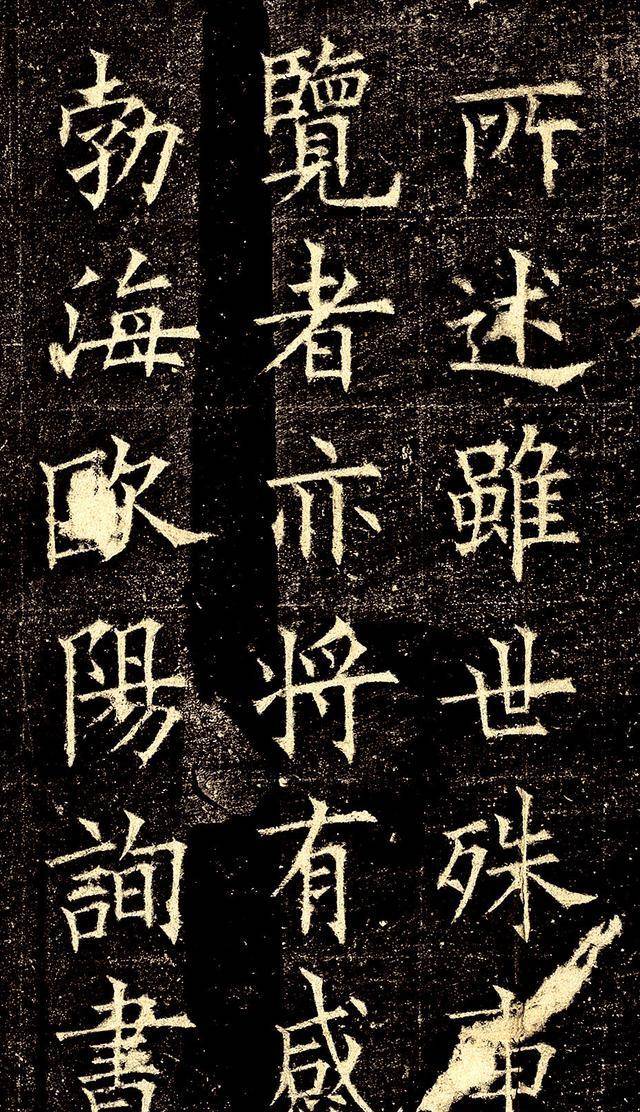 所述雖世殊事
覽者亦将有感
勃海歐陽詢書